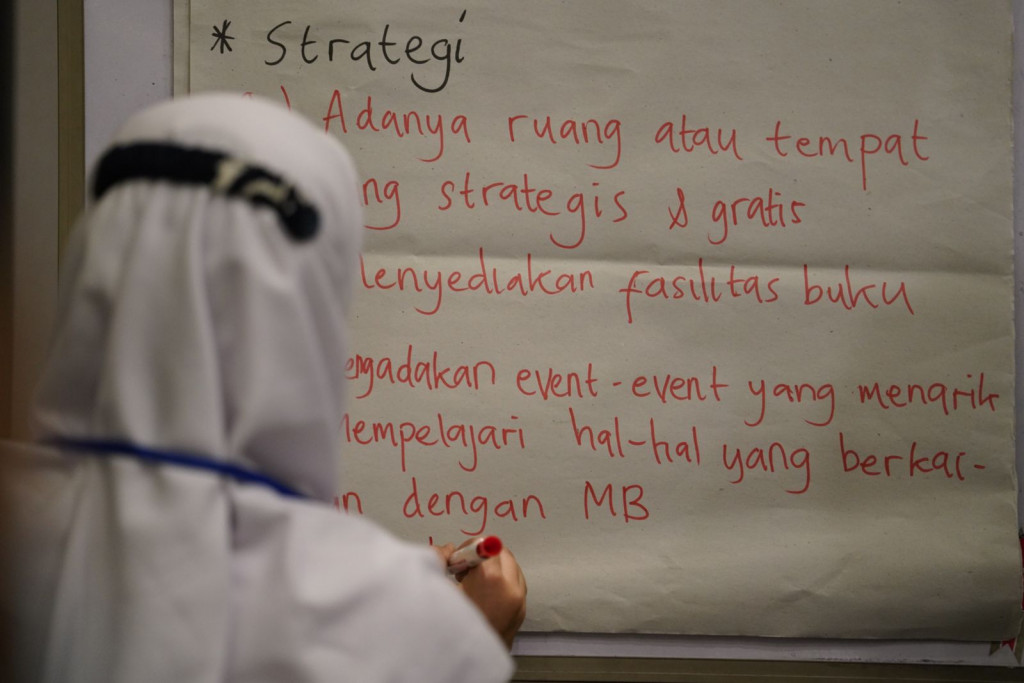 * Strategi
) Adanya ruang atau tempat
ng strategis & gratis
Menyediakan fasilitas buku
engadakan event-event yang menarik
Mempelajari hal-hal yang berkai-
an dengan MB